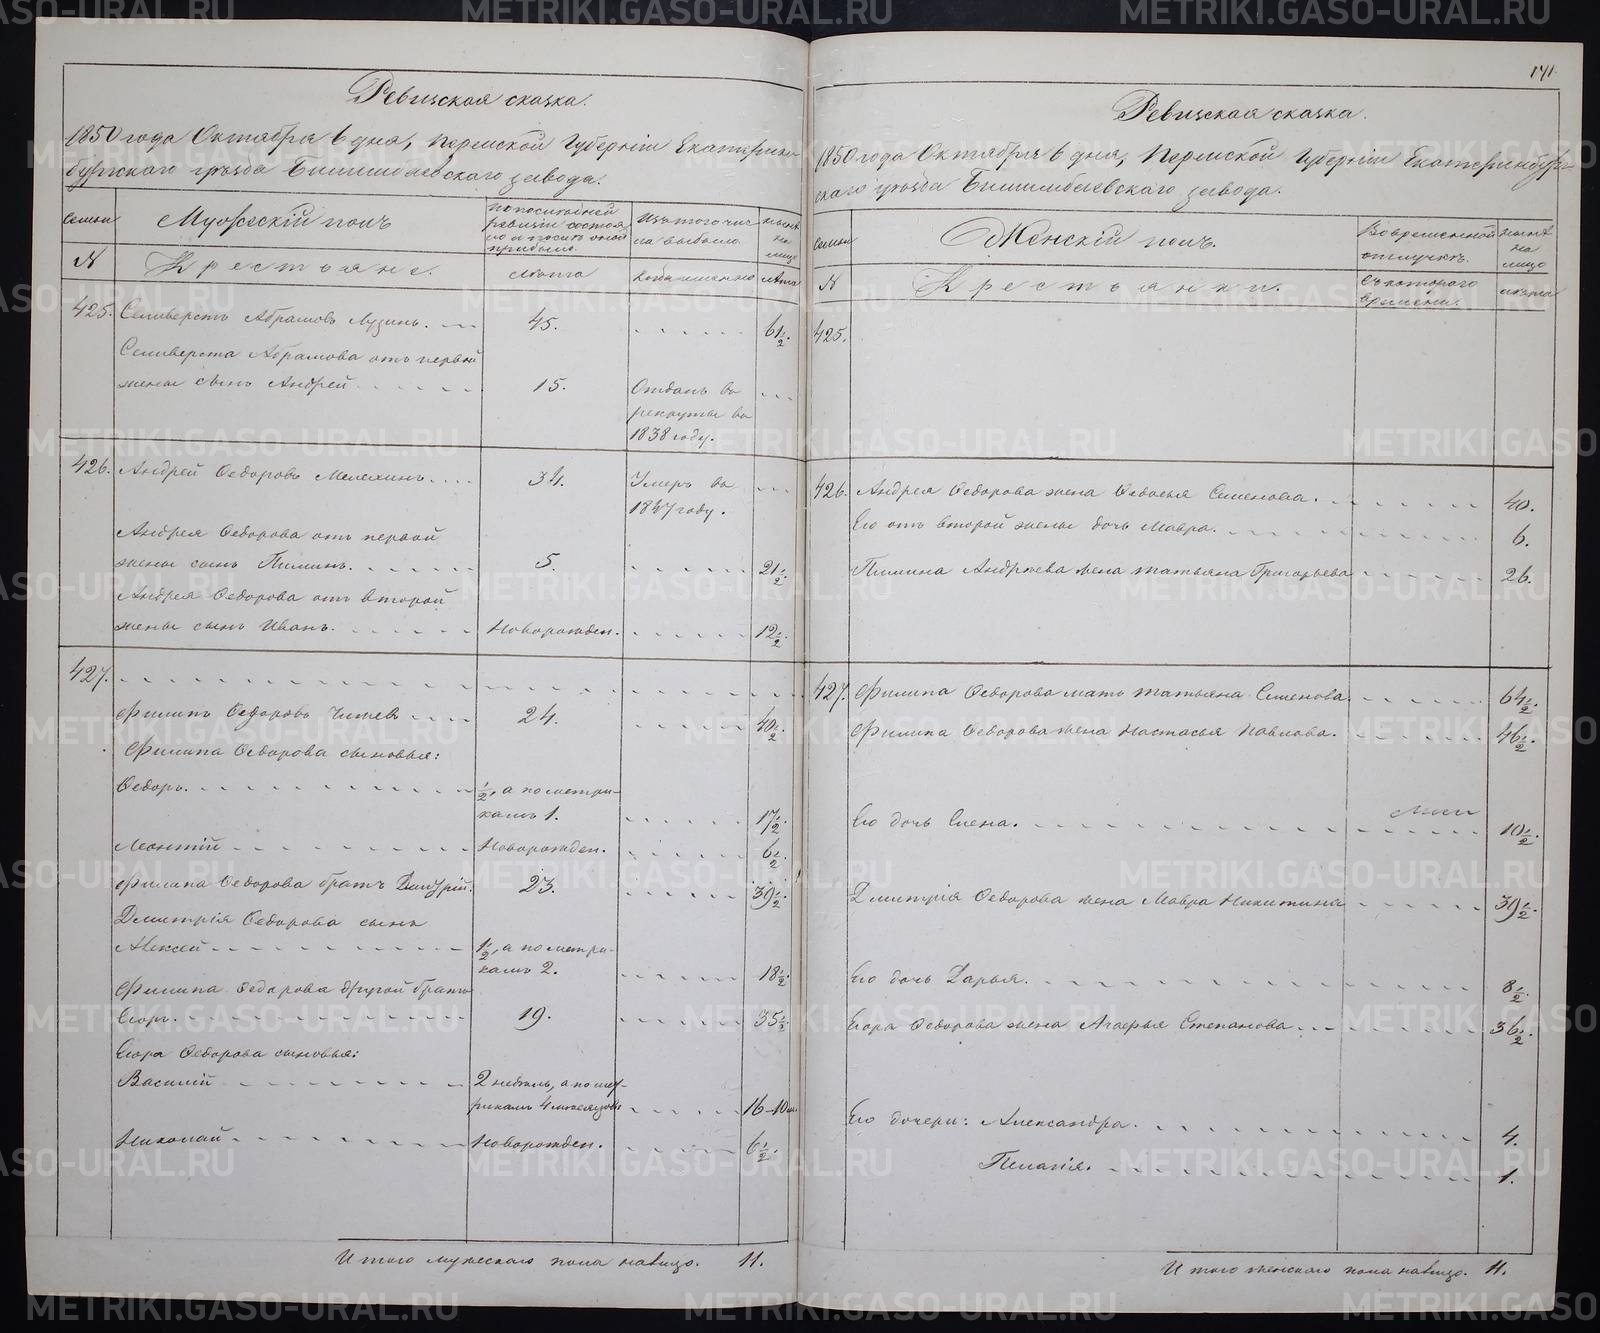 Ревизская сказка.
1850 года Октября 6 дня, Пермской Губернiи Екатерин-
бургскаго уѣзда Билимбаевскаго завода.
Семьи
Мужескiй полъ
По последней ревизiи состояло и после оной прибыло.
Изъ того числа выбыло.
Нынѣ на лицо
N
Крестьяне.
Лѣта
Когда именно
Лѣта
425. Селиверстъ Абрамовъ Лузинъ. 45. 61 1/2.
Селиверста Абрамова отъ первой
жены сынъ Андрей 15. Отданъ въ
рекруты въ
1838 году.
426. Андрей Ѳедоровъ Мелехинъ. 34. Умеръ въ
1847 году.
Андрея Ѳедорова отъ первой
жены сынъ Пиминъ. 5. 21 1/2.
Андрея Ѳедорова отъ второй
жены сынъ Иванъ. Новорожден. 12 1/2.
427.
Филипъ Ѳедоровъ 24. 40 1/2.
Филипа Ѳедорова сыновья:
Ѳедоръ. 1/2, а по метри-
камъ 1. 17 1/2.
Леонтiй Новорожден. 6 1/2.
Филипа Ѳедорова братъ Дмитрiй. 23. 39 1/2.
Дмитрiя Ѳедорова сынъ
Алексей 1 1/2, а по метри-
камъ 2. 18 1/2.
Филипа Ѳедорова другой братъ
Егоръ. 19. 35 1/2.
Егора Ѳедорова сыновья:
Василiй 2 недѣль, а по мет-
рикамъ 4 месяцовъ 16-10 м.
Николай Новорожден. 6 1/2.
Итого мужескаго пола налицо. 11.
171.
Ревизская сказка.
1850 года Октября 6 дня, Пермской Губернiи Екатеринбург-
скаго уѣзда Билимбаевскаго завода.
Семьи
Женскiй полъ.
Во временной отлучкѣ.
Нынѣ на лицо
N
Крестьянки.
Съ котораго времени.
Лѣта
425.
426. Андрея Ѳедорова жена Ѳедосья Семенова. 40.
Его отъ второй жены дочь Мавра. 6.
Пимина Андрѣева жена Татьяна Григорьева 26.
427. Филипа Ѳедорова мать Татьяна Семенова. 64 1/2.
Филипа Ѳедорова жена Настасья Павлова. 46 1/2.
Его дочь Елена. 10 1/2.
Дмитрiя Ѳедорова жена Мавра Никитина 39 1/2.
Его дочь Дарья. 8 1/2.
Егора Ѳедорова жена Агафья Степанова 36 1/2.
Его дочери: Александра. 4.
Пелагiя. 1.
Итого женскаго пола налицо. 11.
METRIKI.GASO-URAL.RU